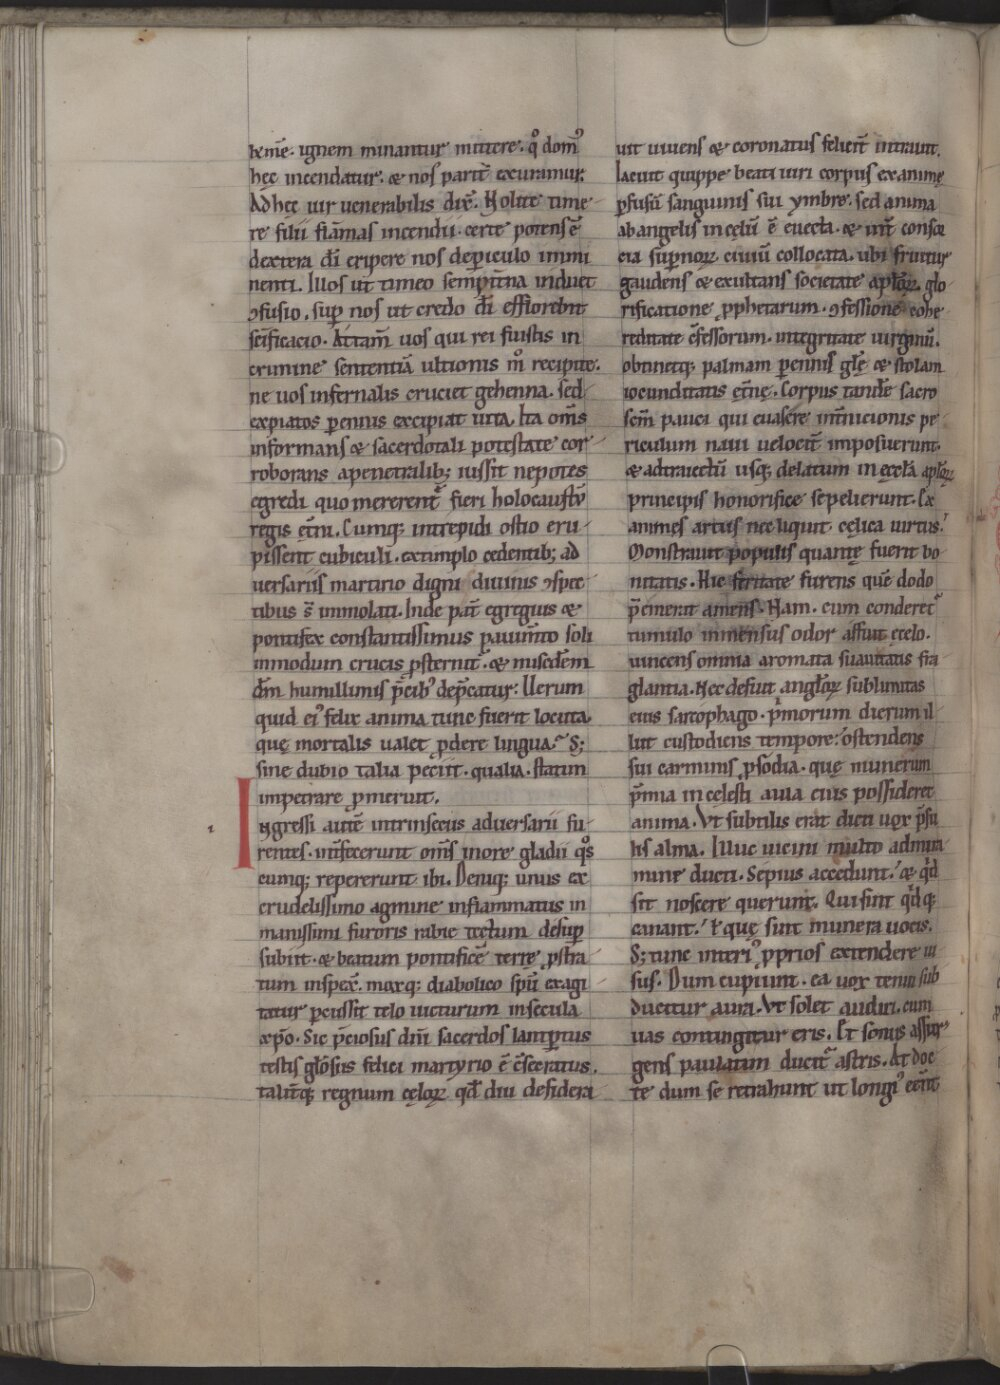 heme͂. ignem minantur mittere. qͦ domꝰ
hęc incendatur. & nos parit͂ excuramur.
Ad hęc uir uenerabilis dix͂. Nolite time
re filii fla͂mas incendii. certe potens e͂
dextera di͂ eripere nos de periculo immi
nenti. Illos ut timeo sempit͂na induet
ꝯfusio. sup͂ nos ut credo di͂ efflorebit
sc͂ificacio. Attam͂ uos qui rei fuistis in
crimine sententia͂ ultionis m͂ recipite.
ne uos infernalis cruciet gehenna. sed
expiatos perennis excipiat uita. Ita om͂s
informans & sacerdotali potestate cor
roborans a penetralib; iussit nepotes
egredi quo mererent᷑ fieri holocaustu͂
regis et͂ni. Cumq; intrepidi ostio eru
pissent cubiculi. extimplo cedentib; ad
uersariis martirio digni diuinis ꝯspec
tibus s͂t immolati. Inde pat͂ egregius &
pontifex constantissimus pauim͂to soli
inmodum crucis ꝓsternit᷑. & misedem
dm͂ humillimis p͂cibꝰ dep͂catur: Uerum
quid eiꝰ felix anima tunc fuerit locuta.
quę mortalis ualet ꝓdere lingua? S;
sine dubio talia peciit. qualia statim
impetrare ꝓmeruit.
Ingressi aute͂ intrinsecus aduersarii fu
rentes. int͂fecerunt om͂s inore gladii qͦs
cumq; repererunt ibi. Deniq; unus ex
crudelissimo agmine inflammatus in
manissimi furoris rabie tectum desup͂
subiit. & beatum pontifice͂ terrę ꝓstra
tum inspex͂. moxq; diabolico sp͂u exagi
tatur p̱cussit telo uicturum insecula
xp͂o. Sic p͂ciosus dn͂i sacerdos lantp̱tus
testis gl͂osus felici martyrio e͂ c͂secratus.
talit͂q; regnum cęloꝝ qd͂ diu desidera
uit uiuens & coronatus felicit͂ intrauit.
Iacuit quippe beati uiri corpus exanimę
ꝑfusu͂ sanguinis sui ymbre. sed anima
ab angelis in cęlu͂ e͂ euecta. & int͂ consor
cia sup͂noꝝ ciuiu͂ collocata. ubi fruitur
gaudens & exultans societate apl͂oꝝ. glo
rificatione ꝓphetarum. ꝯfessione cohe
reditate c͂fessorum. integritate uirginu͂.
obtinetq; palmam p̱ennis gl͂ę & stolam
iocunditatis et͂nę. Corpus tande͂ sacro
sc͂m pauci qui euasere int͂nicionis pe
riculum naui uelocit͂ imposuerunt.
& ad traiectu͂ usq; delatum in ęccl͂a apl͂oꝝ
principis honorifice sepelierunt. Ex
animes artus nec liquit cęlica uirtus.
Monstrauit populis quantę fuerit bo
nitatis. Hic feritate furens que͂ dodo
p͂emerat amens. Nam. cum conderet᷑
tumulo inmensus odor affluit ęcelo.
uincens omnia aromata suauitatis fra
glantia. Nec defuit angl͂oꝝ sublimitas
eius sarcophago. p͂morum dierum il
lut custodiens tempore: ostendens
sui carminis ꝓsodia. quę munerum
p͂mia in cęlesti aula eius possideret
anima. Ut subtilis erat dicti uox p͂su
lis alma. Illuc uicini multo admira
mine ducti. Sepius accedunt. & qͥd
sit noscere querunt. Qui sint qͥdq;
canant. ł quę sint munera uocis.
S; tunc interiꝰ ꝓprios extendere ui
sus. Dum cupiunt. ea uox tenui sub
ducitur aura. Ut solet audiri. cum
uas contingitur eris. Et sonus assur
gens paulatim ducit᷑ astris. At doc
te dum se retrahunt ut longiꝰ ec͂nt